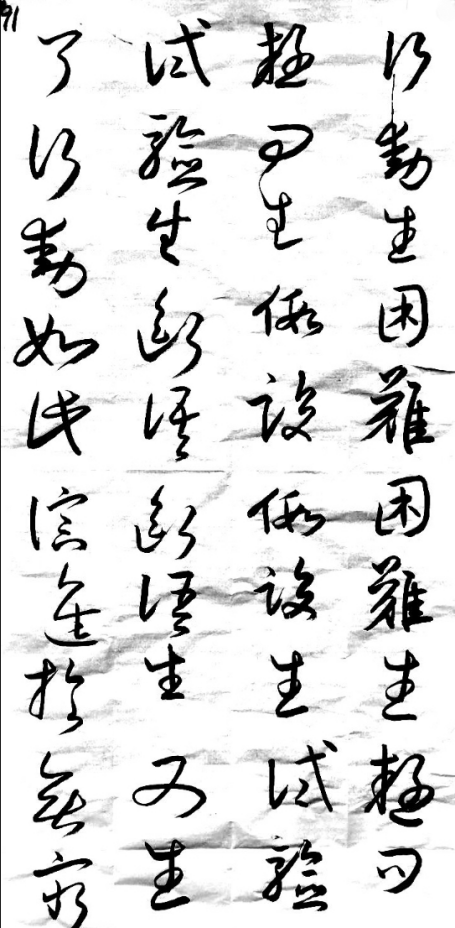 行動生困難困難生疑问
疑问生假設假設生试驗
试驗生断语断语生又生
了行動如此演進於無窮
91